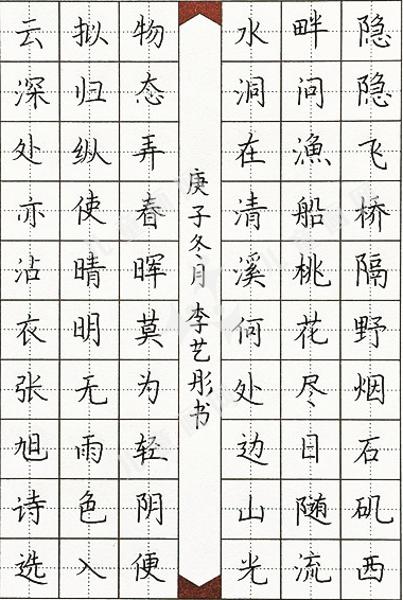 隐隐飞桥隔野烟石矶西
畔问漁船桃花尽日随流
水洞在清溪何处边山光
庚子冬月 李艺彤书
物态弄春晖莫为轻阴便
拟归纵使晴明无雨色入
云深处亦沾衣张旭诗选